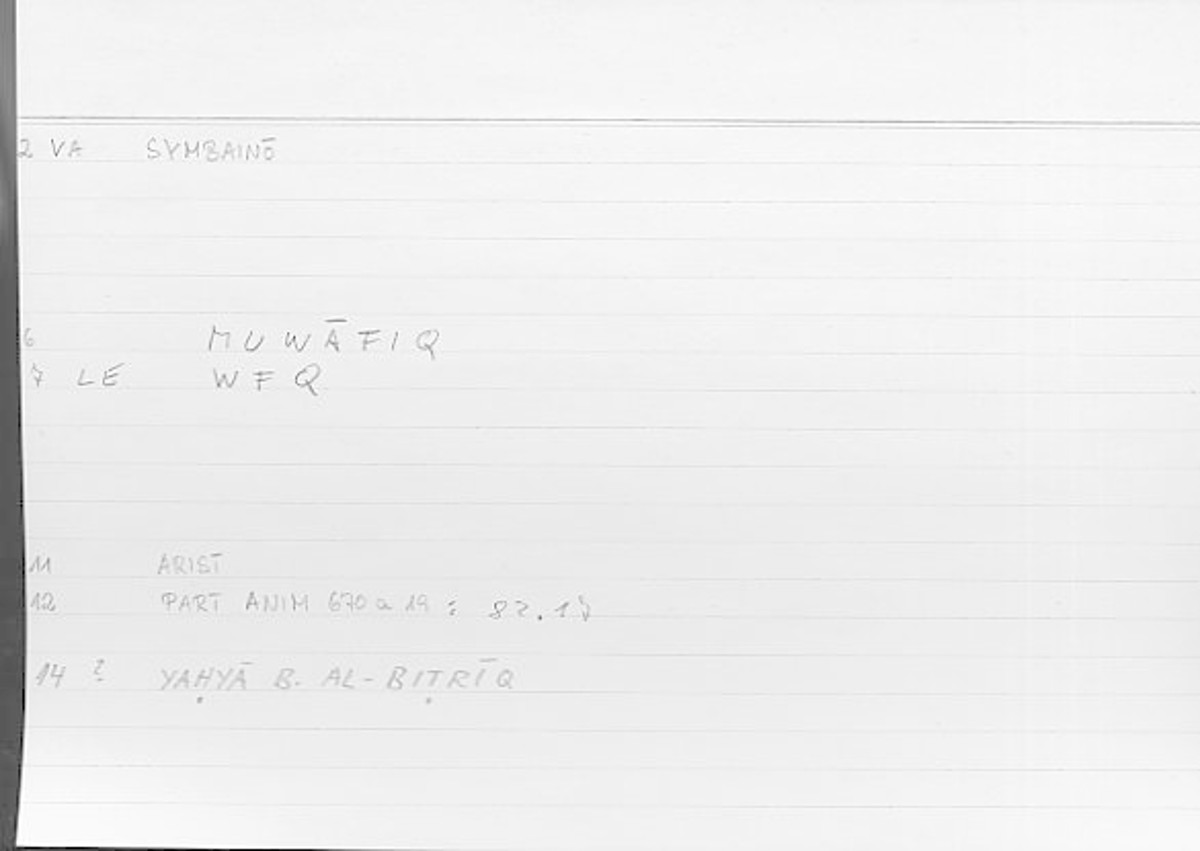 2 VA SYMBAINŌ
6 MUWĀFIQ
7 LE WFQ
11 ARIST
12 PART ANIM 670 a 19 : 82.17
14 ? YAḤYĀ B. AL-BIṬRĪQ